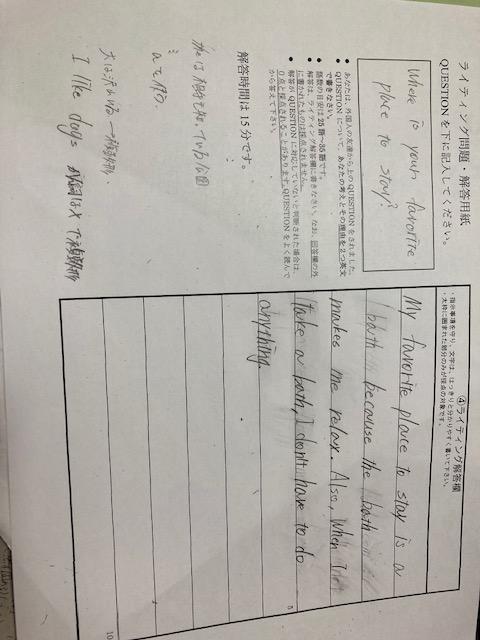 ライティング問題・解答用紙
QUESTION を下に記入してください。
Where is your favorite
place to stay?
● あなたは、外国人の友達から上の QUESTION をされました。
● QUESTION について、あなたの考えとその理由を2つ英文
で書きなさい。
● 語数の目安は 25 語～35 語です。
● 解答は、ライティング解答欄に書きなさい。なお、回答欄の外
に書かれたものは採点されません。
● 解答が QUESTION に対応していないと判断された場合は、
0 点と採点されることがあります。QUESTION をよく読んで
から答えて下さい。
解答時間は 15 分です。
I like dogs
④ライティング解答欄
・指示事項を守り、文字は、はっきりと分かりやすく書いて下さい。
・太枠に囲まれた部分のみが採点の対象です。
My favorite place to stay is a
bath because the bath
makes me relax. Also, When I
take a bath, I don't have to do
5
anything.
10